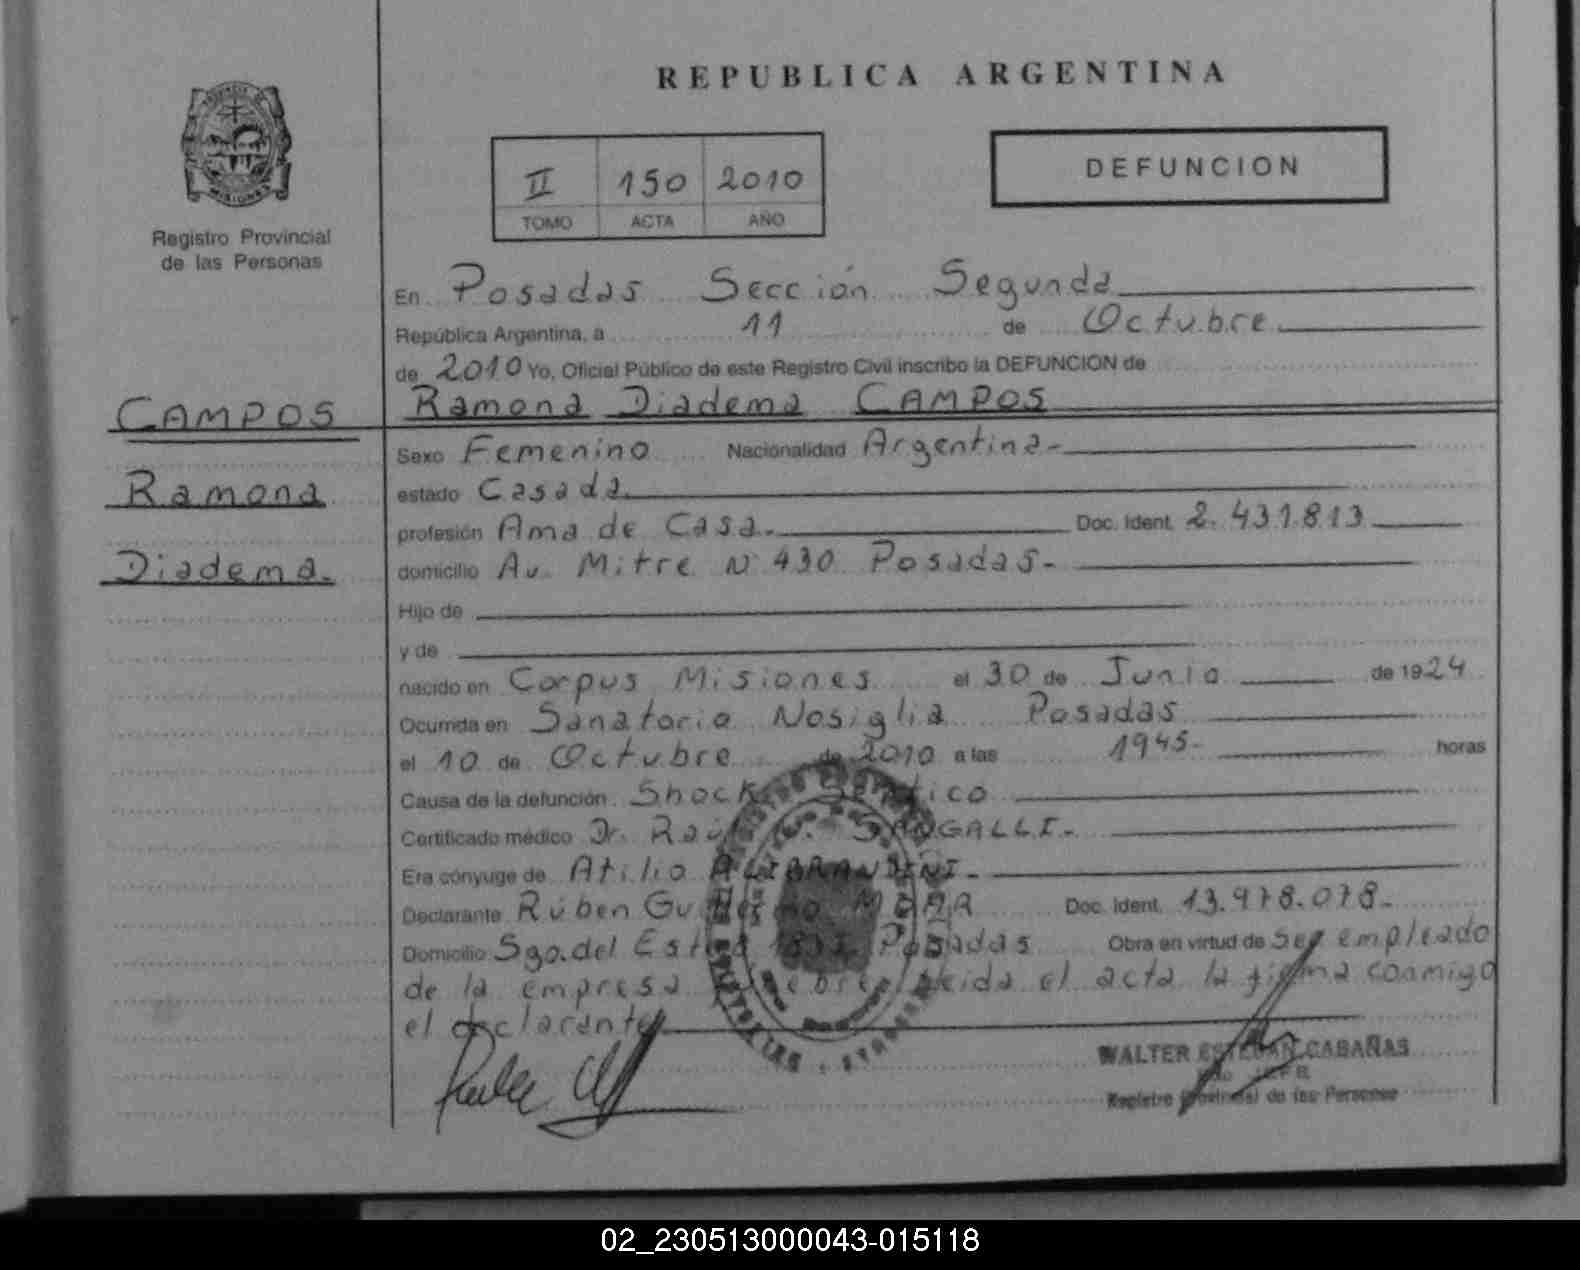 REPUBLICA ARGENTINA
PROVINCIA DE
MISIONES
Registro Provincial
de las Personas
II 150 2010
TOMO ACTA AÑO
DEFUNCION
En Posadas Sección Segunda
República Argentina, a 11 de Octubre
de 2010 Yo, Oficial Público de este Registro Civil inscribo la DEFUNCION de
Ramona Diadema CAMPOS
CAMPOS
Ramona
Diadema.
Sexo Femenino Nacionalidad Argentina-
estado Casada
profesión Ama de Casa. Doc. Ident. 2.431.813
domicilio Av. Mitre N° 430 Posadas-
Hijo de
y de
nacido en Corpus Misiones el 30 de Junio de 1924
Ocurrida en Sanatorio Nosiglia Posadas
el 10 de Octubre de 2010 a las 1945- horas
Causa de la defunción Shock Séptico
Certificado médico Dr. Raúl SANGALLI-
Era cónyuge de Atilio ALIBRANDINI-
Declarante Rúben Guillermo Doc. Ident. 13.978.078-
Domicilio Sgo. del Estero Posadas Obra en virtud de Ser empleado
de la empresa leida el acta la firma conmigo
el declarante
WALTER ESTEBAN CABAÑAS
Registro Provincial de las Personas
02_230513000043-015118